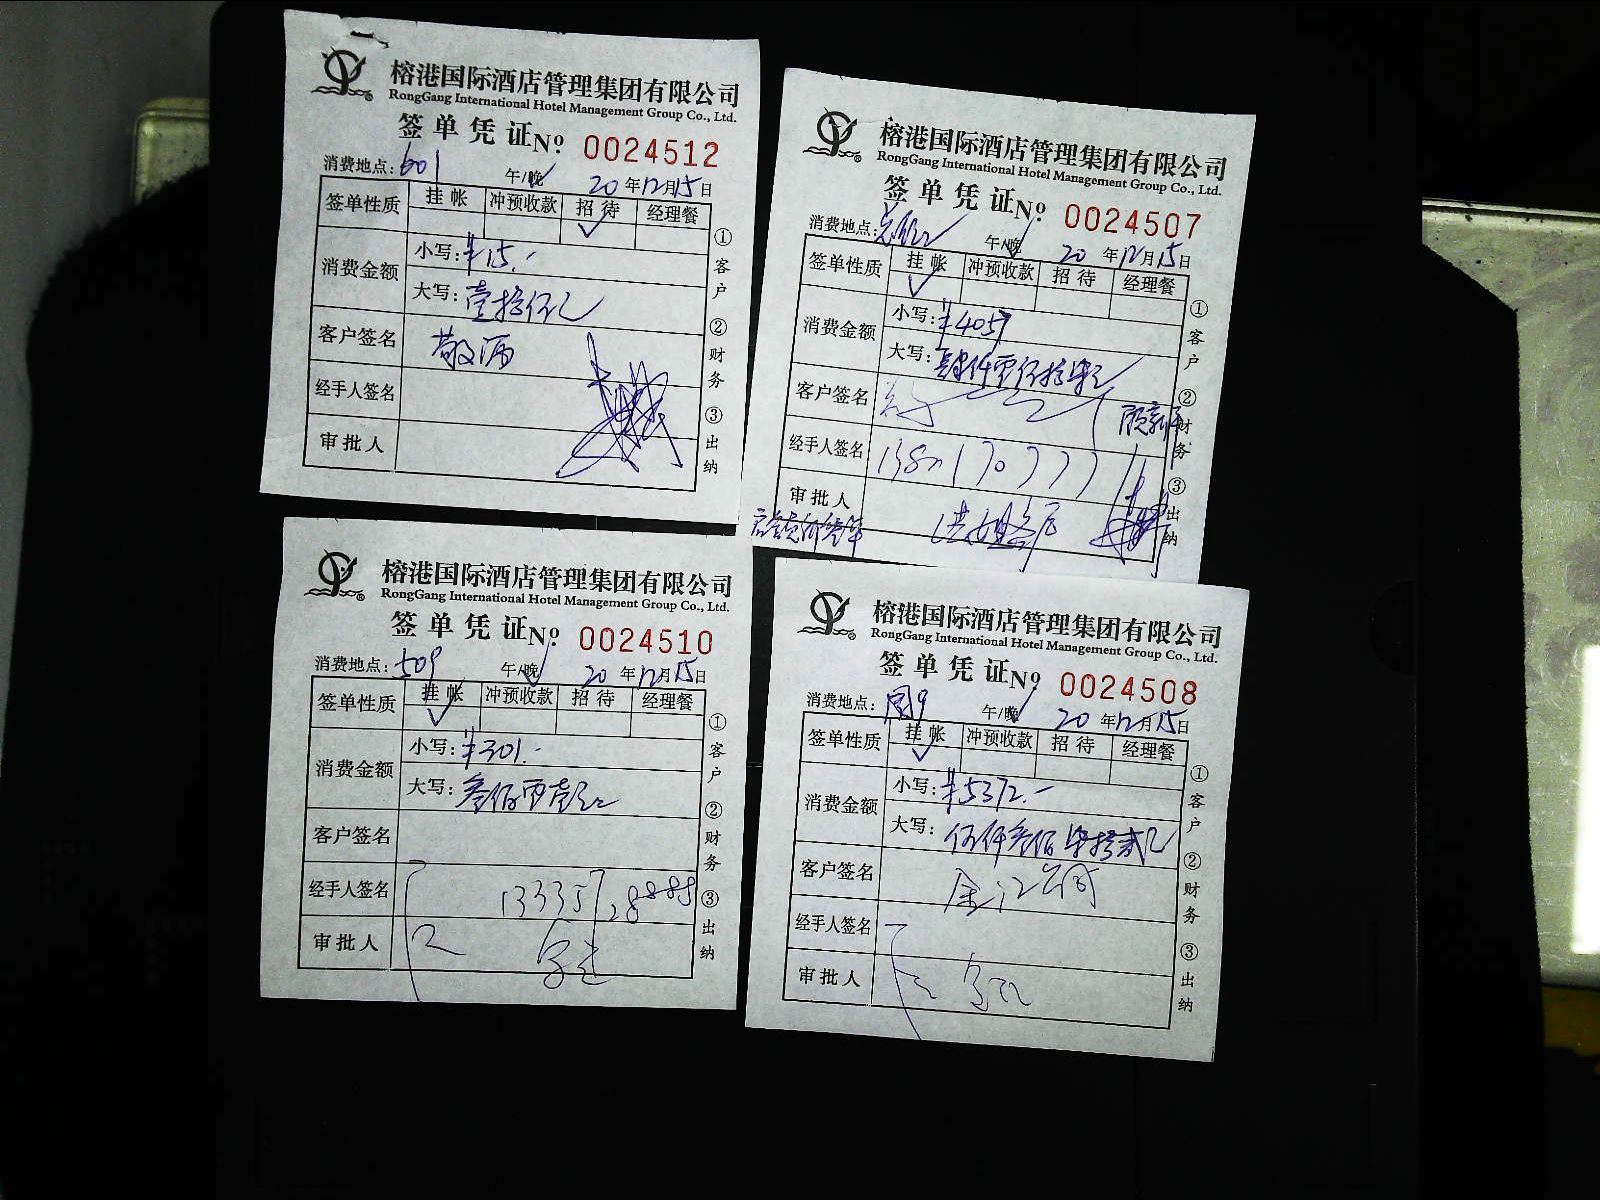 榕港国际酒店管理集团有限公司
RongGang International Hotel Management Group Co., Ltd.
签单凭证 No. 0024512
消费地点: 601 午/晚 20 年 12 月 15 日
签单性质 挂帐 冲预收款 招待 经理餐
消费金额 小写: ¥15.-
大写: 壹拾伍元
客户签名 敬酒
经手人签名
审批人
①客户 ②财务 ③出纳
榕港国际酒店管理集团有限公司
RongGang International Hotel Management Group Co., Ltd.
签单凭证 No. 0024507
消费地点: 午/晚 20 年 12 月 15 日
签单性质 挂帐 冲预收款 招待 经理餐
消费金额 小写: ¥4057
大写: 肆仟零伍拾柒元
客户签名
经手人签名
审批人
①客户 ②财务 ③出纳
榕港国际酒店管理集团有限公司
RongGang International Hotel Management Group Co., Ltd.
签单凭证 No. 0024510
消费地点: 509 午/晚 20 年 12 月 15 日
签单性质 挂帐 冲预收款 招待 经理餐
消费金额 小写: ¥301.-
大写: 叁佰零壹元
客户签名
经手人签名 13357828888
审批人
①客户 ②财务 ③出纳
榕港国际酒店管理集团有限公司
RongGang International Hotel Management Group Co., Ltd.
签单凭证 No. 0024508
消费地点: 午/晚 20 年 12 月 15 日
签单性质 挂帐 冲预收款 招待 经理餐
消费金额 小写: ¥5372.-
大写: 伍仟叁佰柒拾贰元
客户签名
经手人签名
审批人
①客户 ②财务 ③出纳